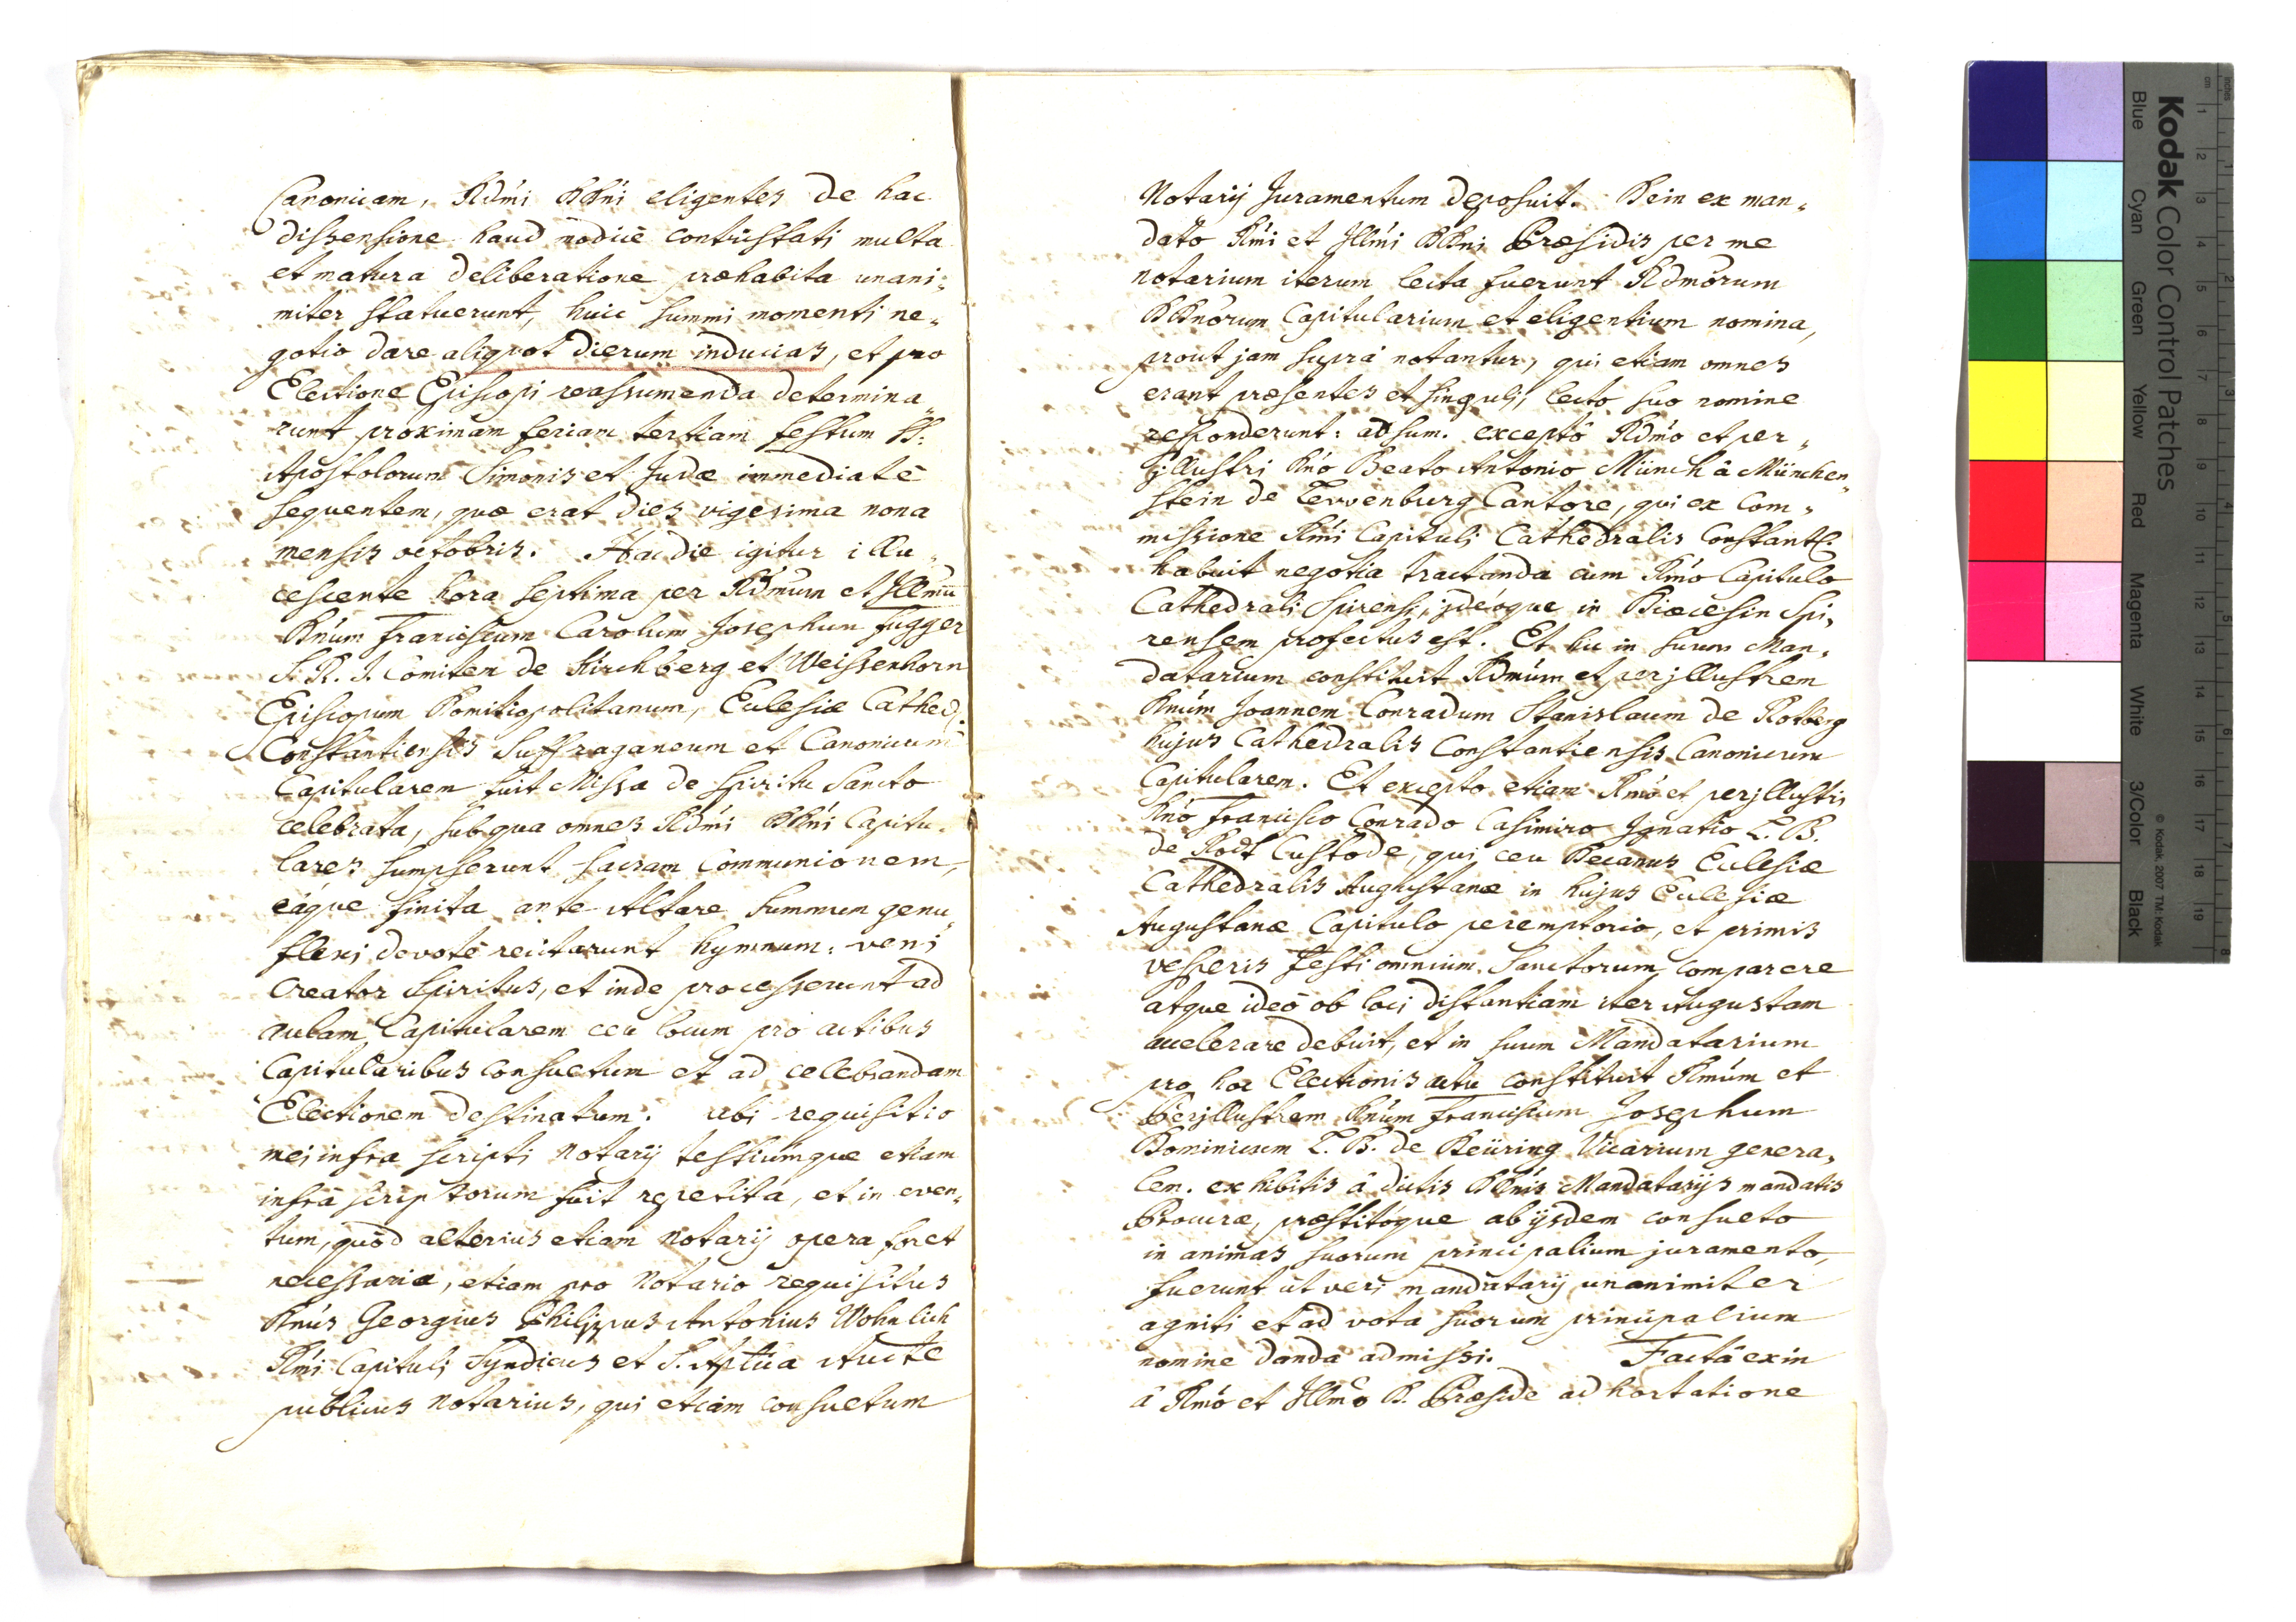 Canonicam, Rdm̃i DDn̄i eligentes de hac
dissensione haud modicè contristati multa
et matura deliberatione præhabita unani„
miter statuerunt, huic summi momenti ne„
gotio dare aliquot dierum inducias, et pro
Electione Episcopi reassumenda determina„
runt proximam feriam tertiam festum SS.
Apostolorum Simonis et Judæ immediatè
sequentem, quæ erat dies vigesima nona
mensis octobris. Hac die igitur illu„
cescente hora septima per Rdm̃um et Illm̃ũ
Dn̄um Franciscum Carolum Josephum Fugger
S. R. J. Comitem de Kirchberg et Weissenhorn
Episcopum Domitiopolitanum, Eclesiæ Cathed.
Constantiensis Suffraganeum et Canonicum
Capitularem fuit Missa de Spiritu Sancto
celebrata, sub qua omnes Rdm̃i DDn̄i Capitu„
lares sumpserunt sacram Communionem,
eâque finita ante Altare summum genu„
flexi devotè recitarunt hymnum: veni
Creator Spiritus, et inde processerunt ad
aulam Capitularem ceu locum pro actibus
Capitularibus consuetum et ad celebrandam
Electionem destinatum. ubi requisitio
mei infra scripti Notarij testiumque etiam
infrà scriptorum fuit repetita, et in even„
tum, quòd alterius etiam Notarij opera foret
necessaria, etiam pro Notario requisitus
Dn̄us Georgius Philippus Antonius Wohnlich
Rm̃i Capituli Syndicus et S. Aptũa Aucte
publicus Notarius, qui etiam consuetum
Notarij Juramentum deposuit. Dein ex man„
dato Rm̃i et Illm̃i DDn̄i Præsidis per me
Notarium iterum lecta fuerunt Rdm̃orum
DDn̄orum Capitularium et eligentium nomina,
prout jam suprà notantur, qui etiam omnes
erant præsentes et singuli, lecto suo nomine
responderunt: adsum. exceptô Rdm̃o et per„
jllustri Dn̄o Beato Antonio Münch à München„
stein de Lewenburg Cantore, qui ex Com„
missione Rm̃i Capituli Cathedralis Constant:
habuit negotia tractanda cum Rm̃o Capitulo
Cathedrali Spirensi, jdeòque in Diœcesin Spi„
rensem profectus est. Et hic in suum Man„
datarium constituit Rdm̃um et perjllustrem
Dn̄um Joannem Conradum Stanislaum de Rotberg
hujus Cathedralis Constantiensis Canonicum
Capitularem. Et excepto etiam Rm̃o et perjllustri
Dn̄o Francisco Conrado Casimiro Ignatio L. B.
de Rodt Custode, qui ceu Decanus Eclesiæ
Cathedralis Augustanæ in hujus Eclesiæ
Augustanæ Capitulo peremptorio, et primis
vesperis Festi omnium Sanctorum comparere
atque ideò ob loci distantiam iter Augustam
accelerare debuit, et in suum Mandatarium
pro hoc Electionis actu constituit Rm̃um et
Perjllustrem Dn̄um Franciscum Josephum
Dominicum L. B. de Deüring Vicarium genera„
lem. exhibitis à dictis DDn̄is Mandatarijs mandatis
Procuræ, præstitoque ab ijsdem consueto
in animas suorum principalium juramento,
fuerunt ut veri mandatarij unanimiter
agniti et ad vota suorum principalium
nomine danda admissi. Factâ exin
à Rm̃o et Illm̃o D. Præside adhortatione
Kodak Color Control Patches
© Kodak, 2007 TM: Kodak
Blue Cyan Green Yellow Red Magenta White 3/Color Black
cm 1 2 3 4 5 6 7 8 9 10 11 12 13 14 15 16 17 18 19
inches 1 2 3 4 5 6 7 8